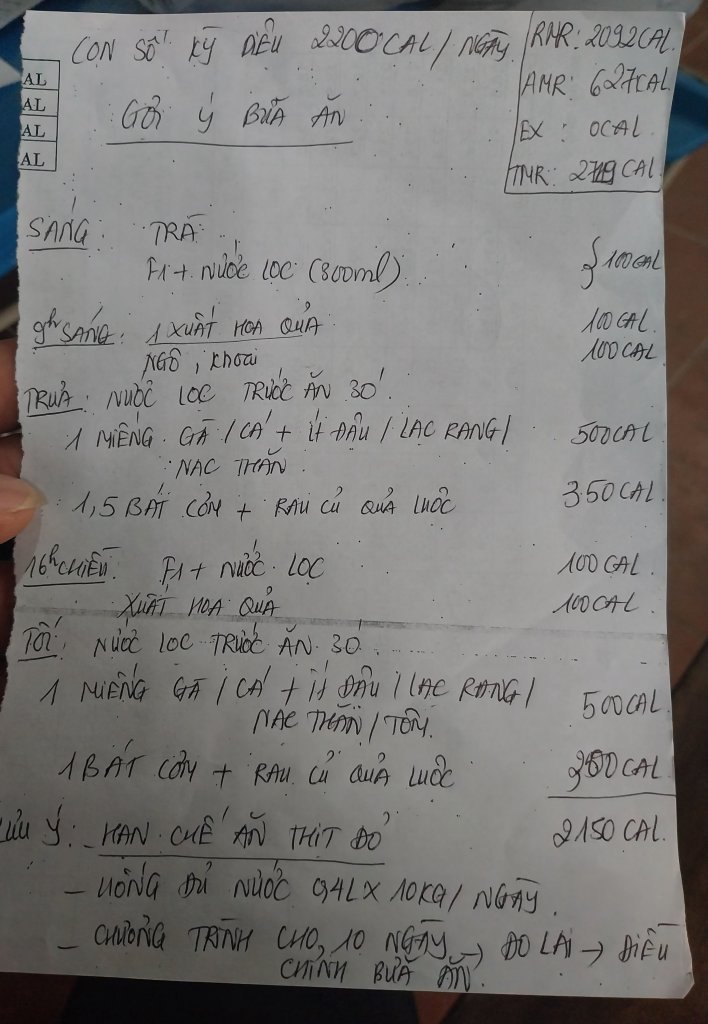 CON SỐ KỲ DIỆU 2200CAL/NGÀY
RMR: 2092CAL
AMR: 627CAL
EX : 0CAL
TMR: 2719 CAL
AL
AL
AL
AL
GỢI Ý BỮA ĂN
SÁNG: TRÀ
F1 + NƯỚC LỌC (300ml) } 100CAL
9h SÁNG: 1 XUẤT HOA QUẢ 100CAL
NGÔ, Khoai 100CAL
TRƯA: NƯỚC LỌC TRƯỚC ĂN 30'
1 MIẾNG GÀ / CÁ + ít ĐẬU / LẠC RANG / 500CAL
NẠC THĂN
1,5 BÁT CƠM + RAU CỦ QUẢ LUỘC 350CAL
16h CHIỀU: F1 + NƯỚC LỌC 100CAL
XUẤT HOA QUẢ 100CAL
TỐI: NƯỚC LỌC TRƯỚC ĂN 30'
1 MIẾNG GÀ / CÁ + ít ĐẬU / LẠC RANG / 500CAL
NẠC THĂN / TÔM.
1 BÁT CƠM + RAU CỦ QUẢ LUỘC 300CAL
2150 CAL
LƯU Ý: - HẠN CHẾ ĂN THỊT ĐỎ
- UỐNG ĐỦ NƯỚC 0,4L X 10KG / NGÀY.
- CHƯƠNG TRÌNH CHO 10 NGÀY → ĐO LẠI → ĐIỀU
CHỈNH BỮA ĂN.